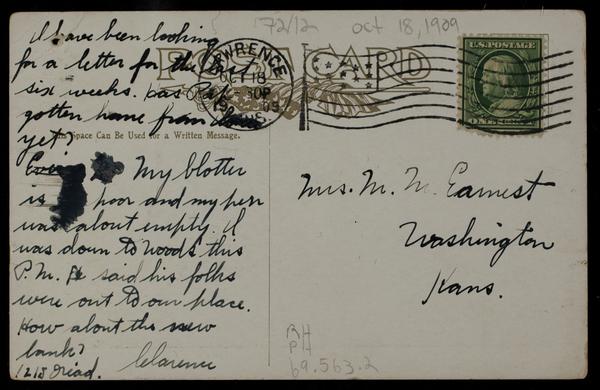 72/12 Oct 18, 1909
I have been looking
for a letter for the
six weeks. Has
gotten home from
yet?
POST CARD
LAWRENCE
OCT 18
1909
KANS.
This Space Can Be Used for a Written Message.
U.S. POSTAGE
My blotter
is poor and my pen
was about empty. I
was down to Woods this
P.M. He said his folks
were out to our place.
How about the new
bank?
Clarence
1215 Oread.
Mrs. M. M. Earnest
Washington
Kans.
RH
PH
69.563.2